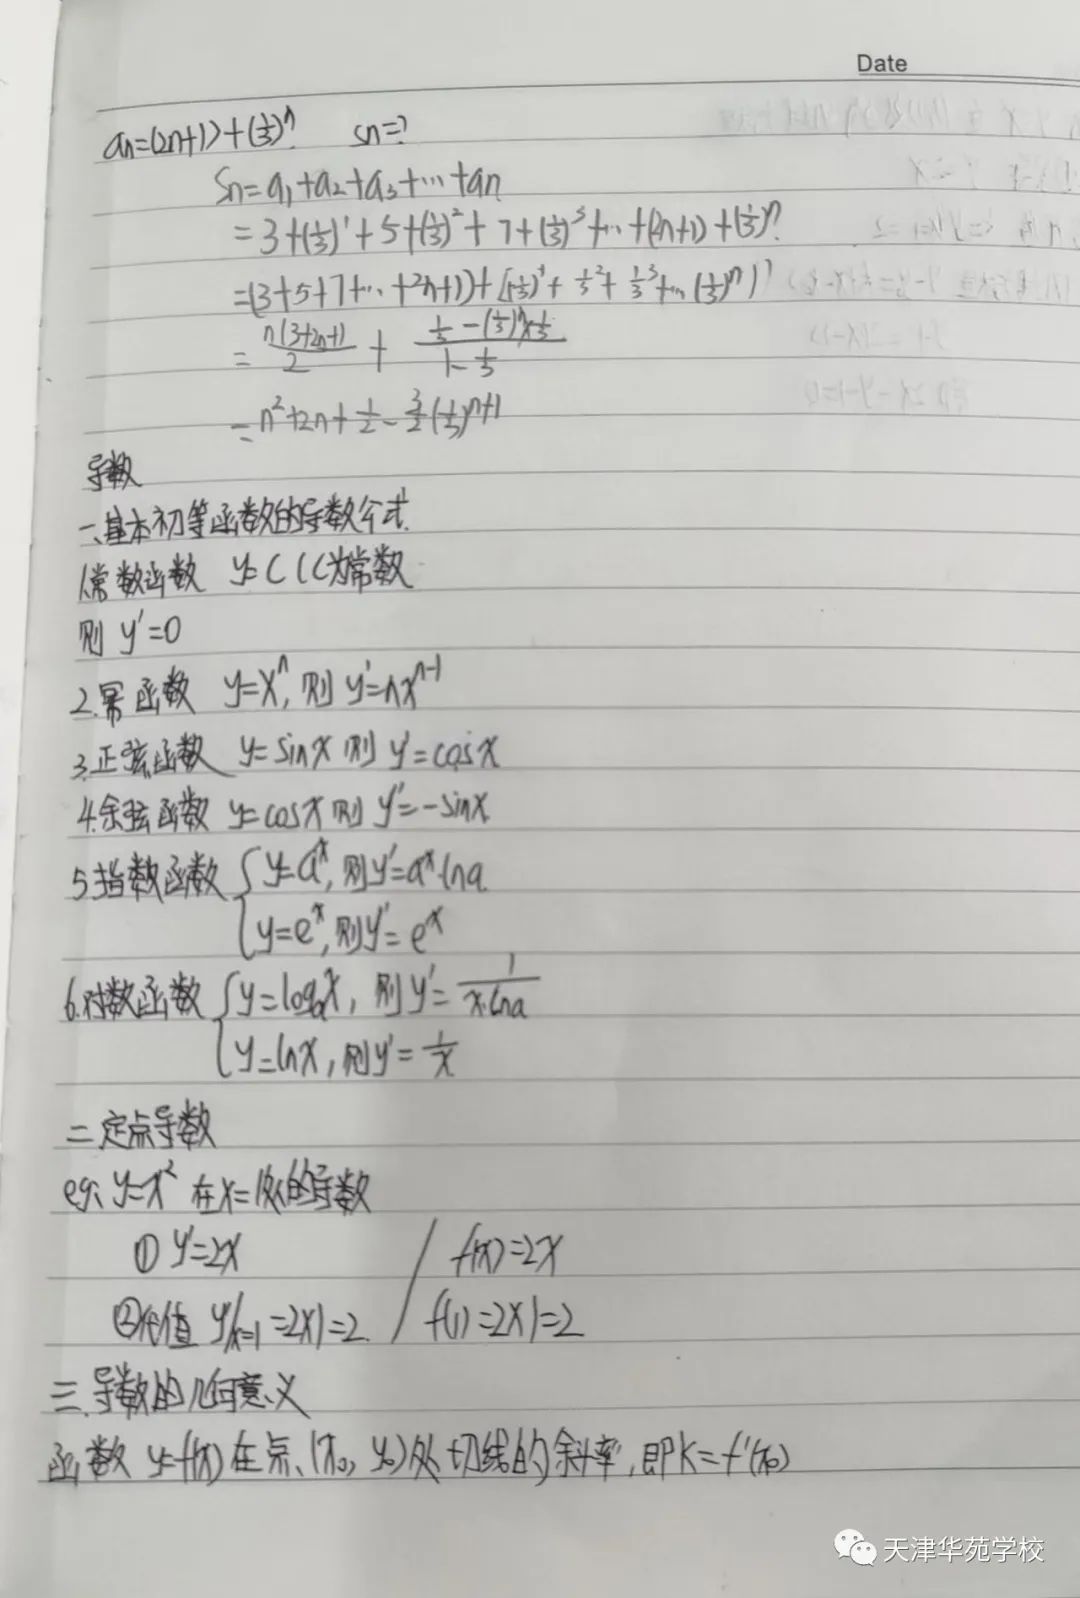 Date
an=(2n+1)+(1/3)^n sn=?
Sn=a₁+a₂+a₃+…+an
=3+(1/3)^1+5+(1/3)^2+7+(1/3)^3+…+(2n+1)+(1/3)^n
=(3+5+7+…+2n+1)+[(1/3)^1+1/3^2+1/3^3+…(1/3)^n]
=n(3+2n+1)/2+(1/3-(1/3)^n×1/3)/(1-1/3)
=n²+2n+1/2-3/2(1/3)^(n+1)
导数
一、基本初等函数的导数公式.
1.常数函数 y=C (C为常数
则 y'=0
2.幂函数 y=x^n, 则 y'=nx^(n-1)
3.正弦函数 y=sinx 则 y'=cosx
4.余弦函数 y=cosx 则 y'=-sinx
5.指数函数 { y=a^x, 则y'=a^x·lna
y=e^x, 则y'=e^x
6.对数函数 { y=logₐx, 则 y'=1/(x·lna)
y=lnx, 则y'=1/x
二 定点导数
eg、y=x² 在x=1处的导数
① y'=2x / f(x)=2x
②代值 y'|x=1 =2×1=2. / f(1)=2×1=2
三、导数的几何意义
函数 y=f(x) 在点(x₀, y₀)处切线的斜率, 即 k=f'(x₀)
天津华苑学校